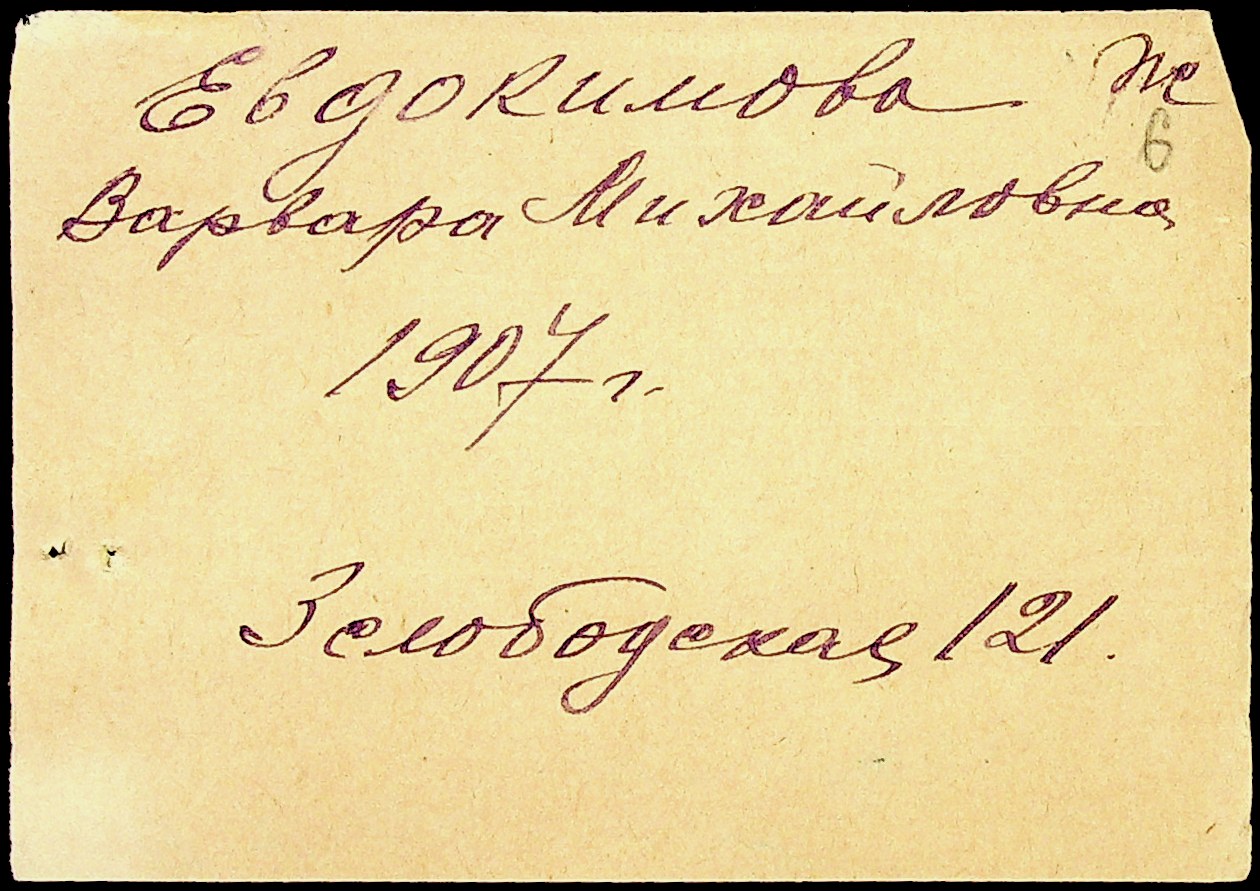 Евдокимова
6
Варвара Михайловна
1907 г.
3 слободская 121.